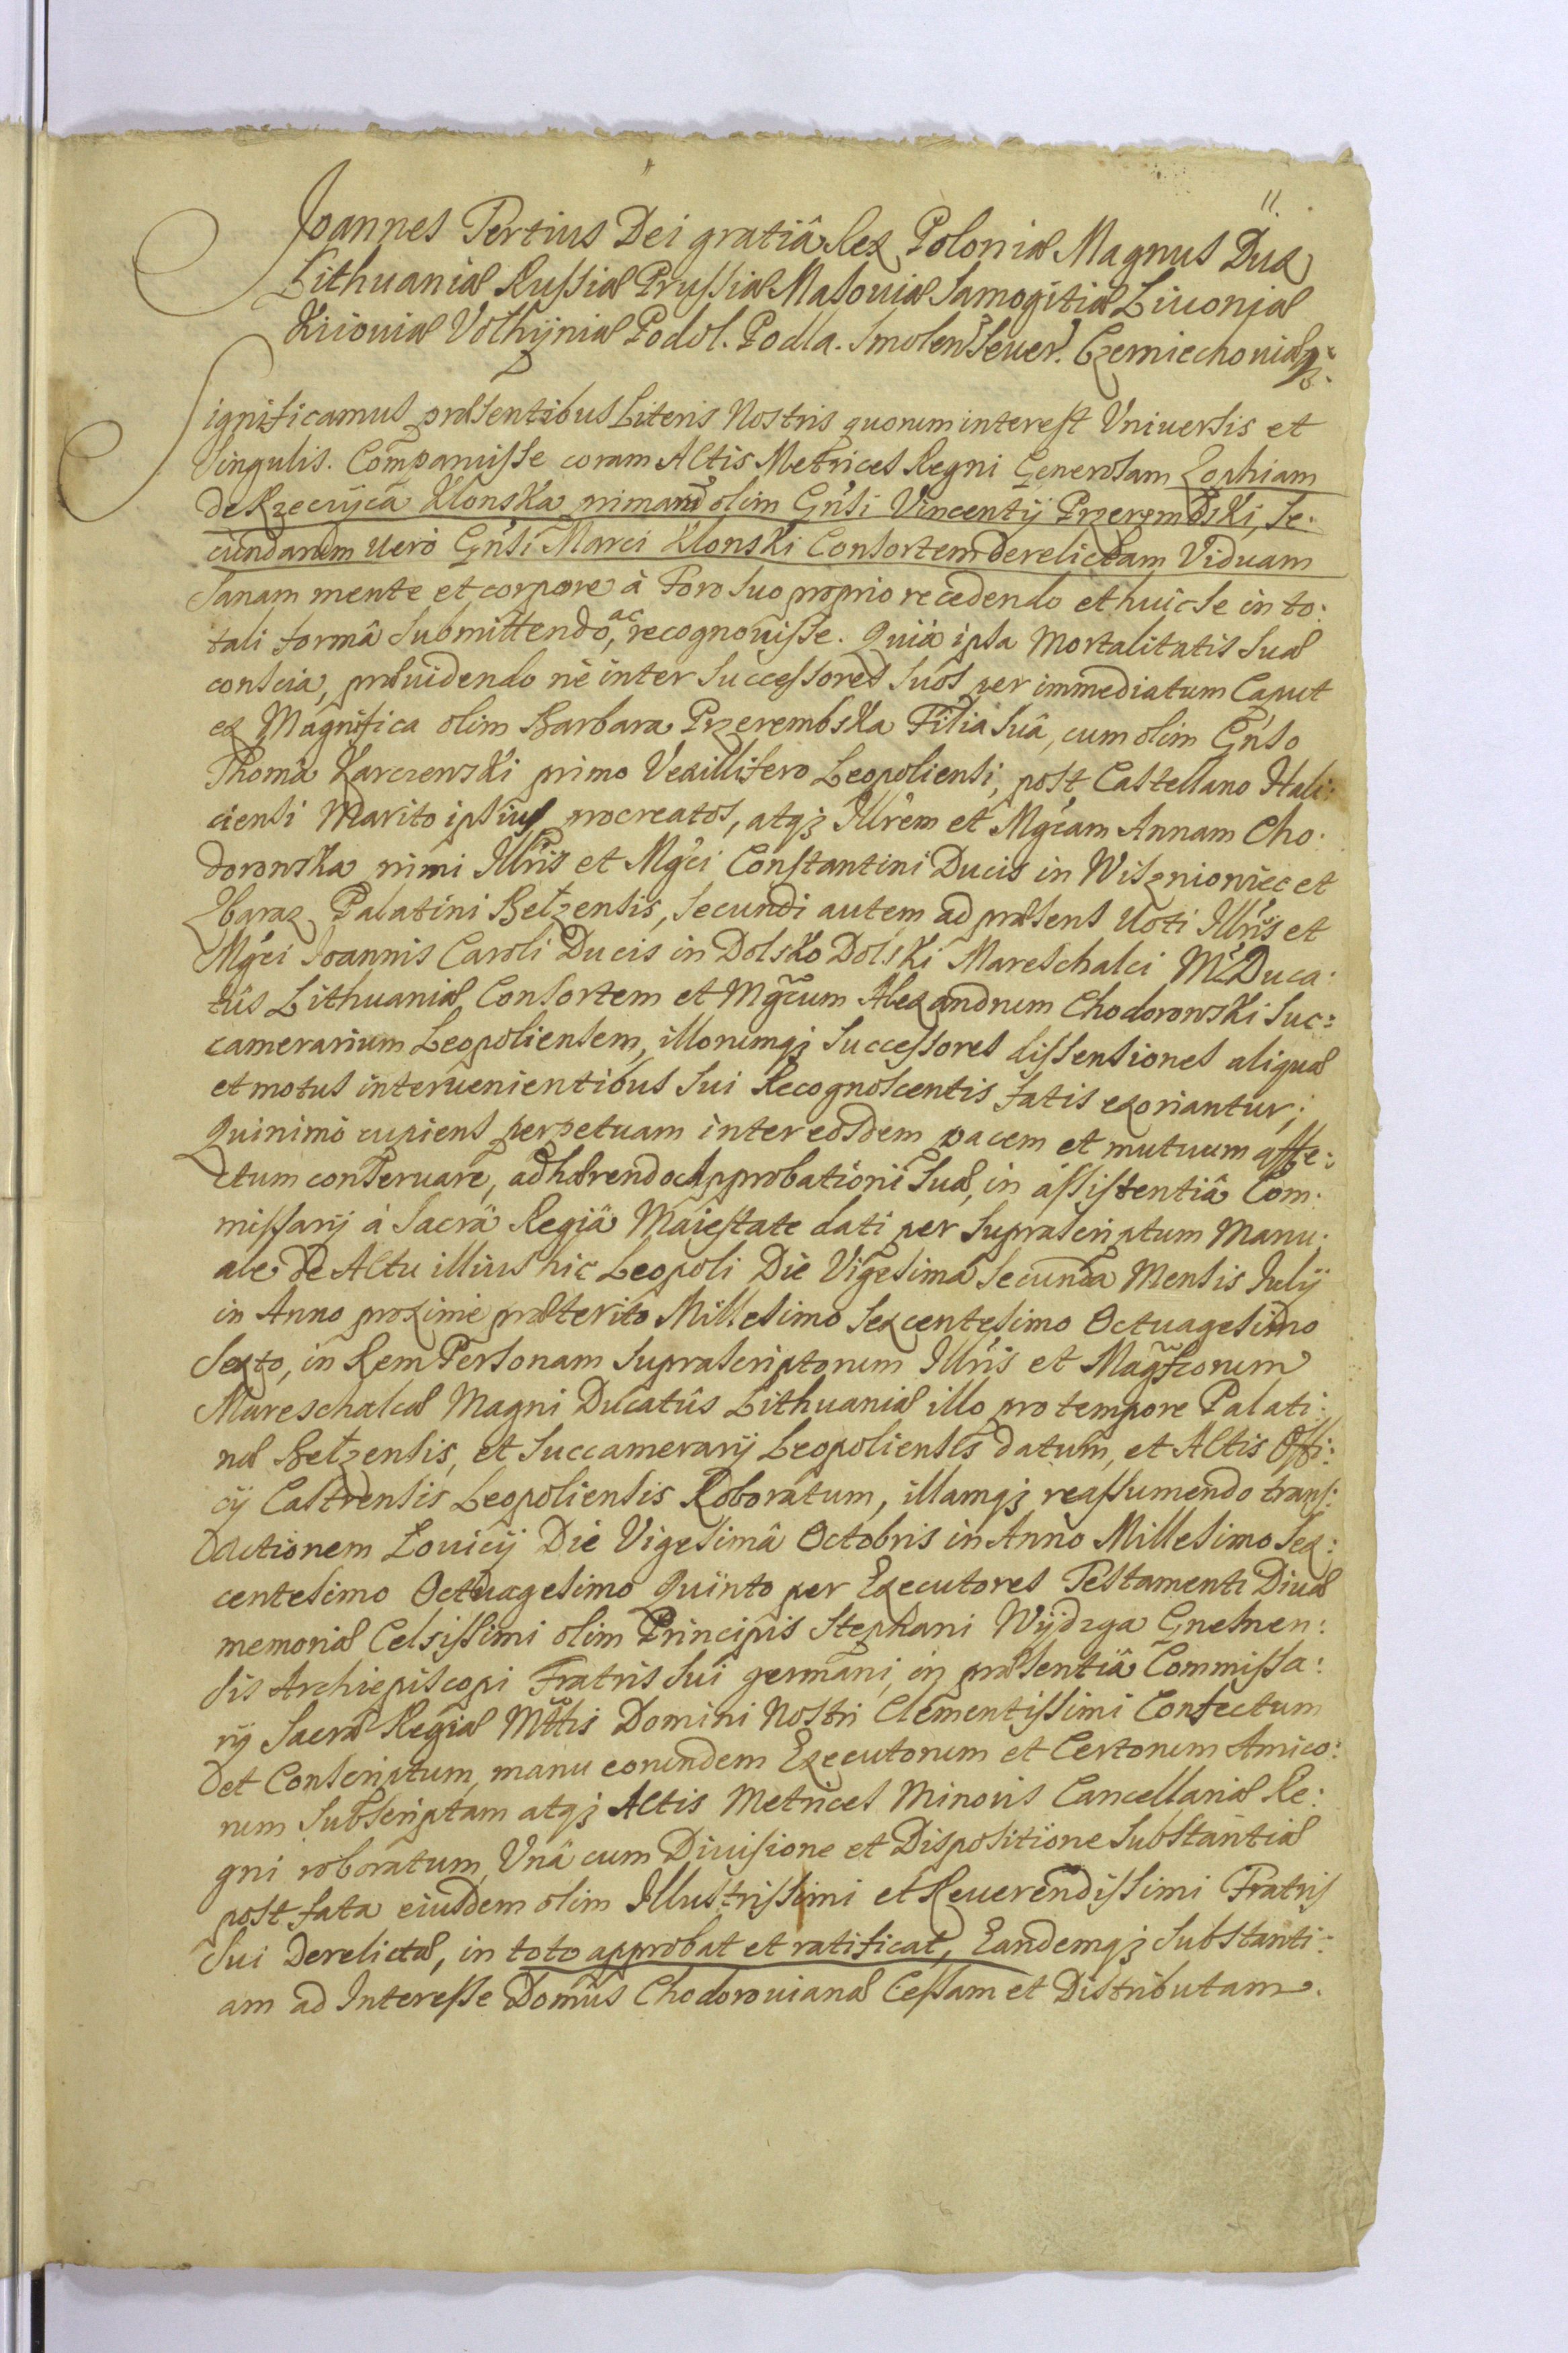 11.
Joannes Tertius Dei gratiâ Rex Poloniæ Magnus Dux
Lithuaniæ Russiæ Prussiæ Masouiæ Samogitiæ Liuoniæ
Kiiouiæ Volhÿniæ Podol. Podla. Smolen. Seuer. Czerniechouiæq;
Significamus præsentibus Literis Nostris quorum interest Vniuersis et
Singulis. Comparuisse coram Actis Metrices Regni Generosam Zophiam
de Rzeczÿca Klonska primarũ olim Gn̑si Vincentÿ Przerembski, Se:
cundarum uero Gn̑si Marci Klonski Consortem derelictam Viduam
Sanam mente et corpore à Foro suo proprio recedendo et huic se in to:
tali formâ submittendo, ac recognouisse. Quia ipsa Mortalitatis suæ
conscia, præuidendo nè inter Successores suos per immediatum Caput
ex Magnifica olim Barbara Przerembska Filia suâ, cum olim Gn̑so
Thoma Karczewski primo Vexillifero Leopoliensi, post Castellano Hali:
ciensi Marito ipsius procreatos, atq; Illȓem et Mgc̑am Annam Cho:
dorowska primi Illȓis et Mgc̑i Constantini Ducis in Wiszniowiec et
Zbaraz Palatini Belzensis, secundi autem ad præsens uoti Illȓis et
Mgc̑i Joannis Caroli Ducis in Dolsko Dolski Mareschalci M. Duca:
tûs Lithuaniæ Consortem et Mgc̑um Alexandrum Chodorowski Suc:
camerarium Leopoliensem, illorumq; Successores dissensiones aliquæ
et motus interuenientibus sui Recognoscentis fatis exoriantur;
Quinimò cupiens perpetuam inter eosdem pacem et mutuum affe:
ctum conseruare, adhærendo Approbationi suæ, in assistentiâ Com:
missarÿ à Sacrâ Regiâ Maiestate dati per suprascriptum Manu:
ale de Actu illius hic Leopoli Die Vigesima Secunda Mensis Julÿ
in Anno proxime præterito Millesimo Sexcentesimo Octuagesimo
Sexto, in Rem Personam suprascriptorum Illȓis et Magf̑corum
Mareschalcæ Magni Ducatûs Lithuaniæ illo pro tempore Palati:
næ Belzensis, et Succamerarÿ Leopoliensis datum, et Actis Offi:
cÿ Castrensis Leopoliensis Roboratum, illamq; reassumendo trans:
actionem Louicÿ Die Vigesimâ Octobris in Anno Millesimo Sex:
centesimo Octuagesimo Quinto per Executores Testamenti Diuæ
memoriæ Celsissimi olim Principis Stephani Wÿdzga Gnesnen:
sis Archiepiscopi Fratris sui germani, in præsentiâ Commissa:
rÿ Sacræ Regiæ Mttis Domini Nostri Clementissimi Confectum
et Conscriptum, manu eorundem Executorum et Certorum Amico:
rum Subscriptam atq; Actis Metrices Minoris Cancellariæ Re:
gni roboratum, Vnâ cum Diuisione et Dispositione Substantiæ
post fata eiusdem olim Illustrissimi et Reuerendissimi Fratris
sui Derelictæ, in toto approbat et ratificat, Eandemq; Substanti:
am ad Interesse Domûs Chodorouianæ Cessam et Distributam.